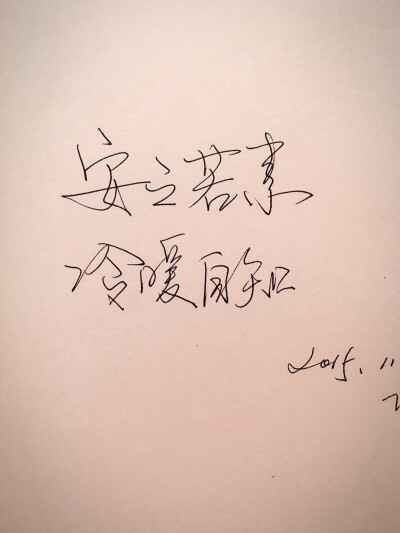 安之若素
冷暖自知
2015.11